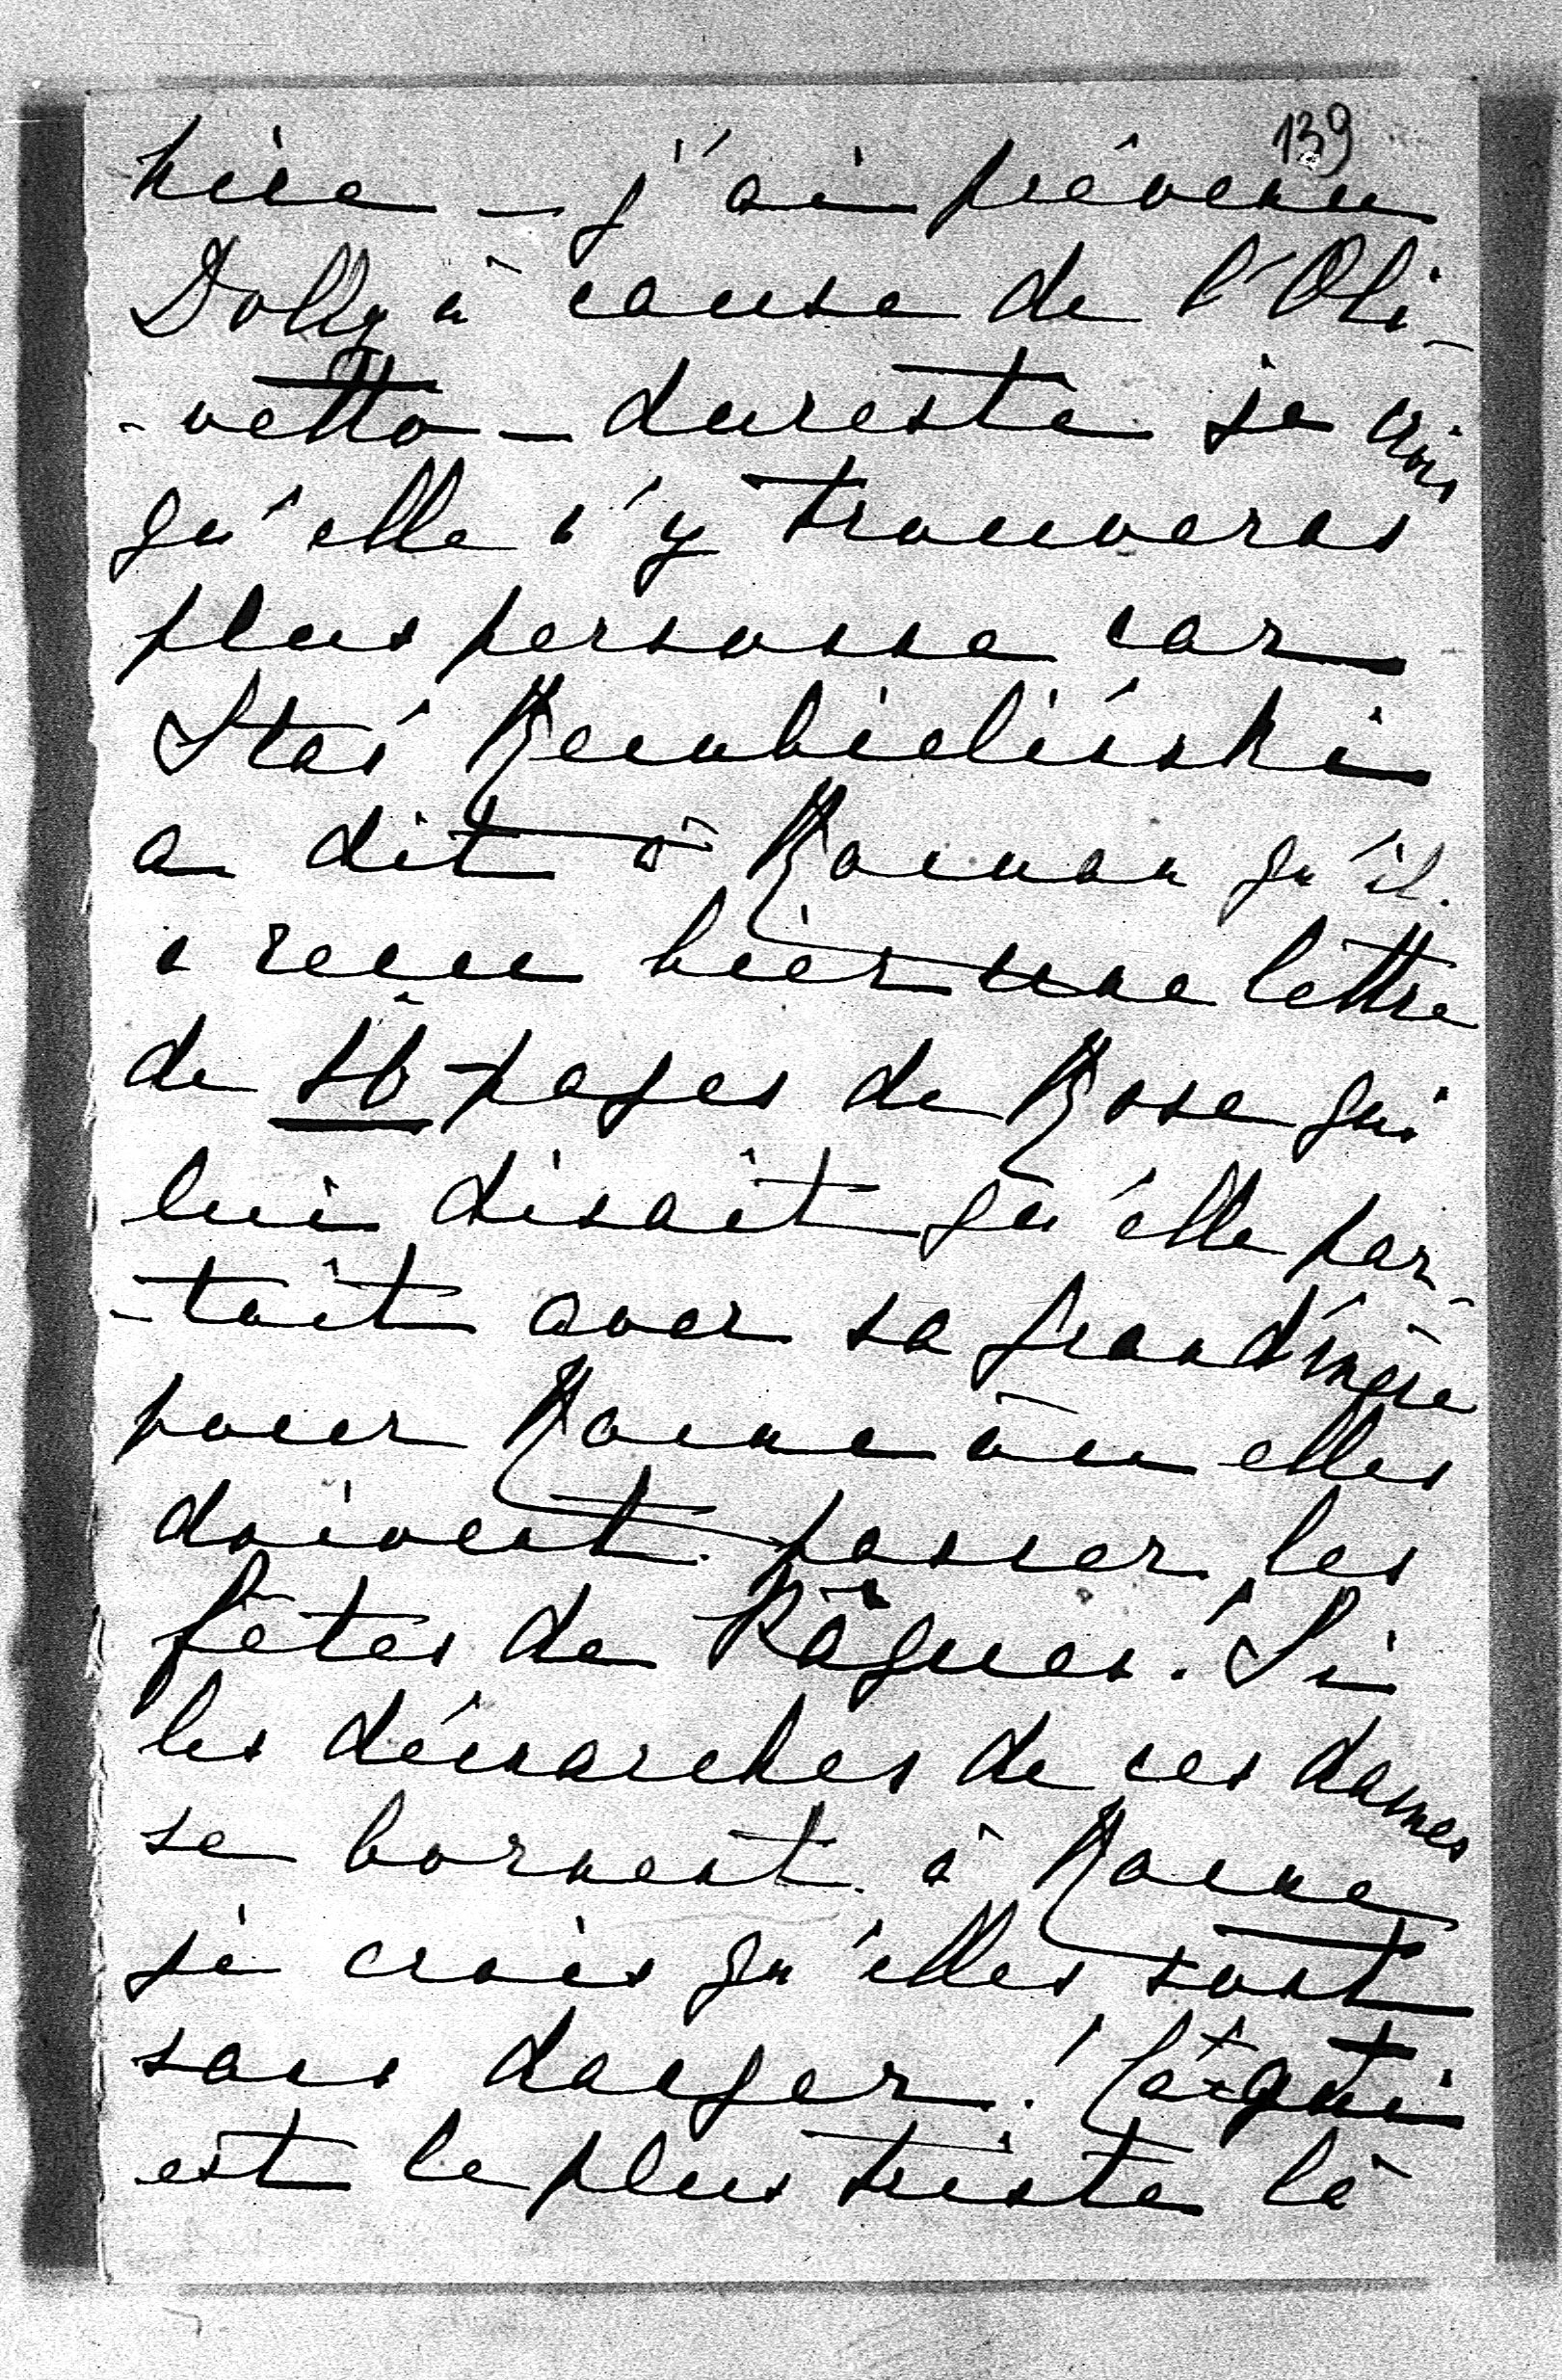 139
nière – j'ai prévenu
Dolly à cause de l'Oli-
-vetto – dureste je crois
qu'elle n'y trouveras
plus personne car
Staś Rembieliński
a dit à Roman qu'il
a reçu hier une lettre
de 16 pages de Rose qui
lui disait qu'elle par-
-tait avec sa grand'mère
pour Rome où elles
doivent passer les
fêtes de Pâques. Si
les démarches de ces dames
se bornent à Rome
je crois qu'elles sont
sans danger! Ce qui
est le plus triste là